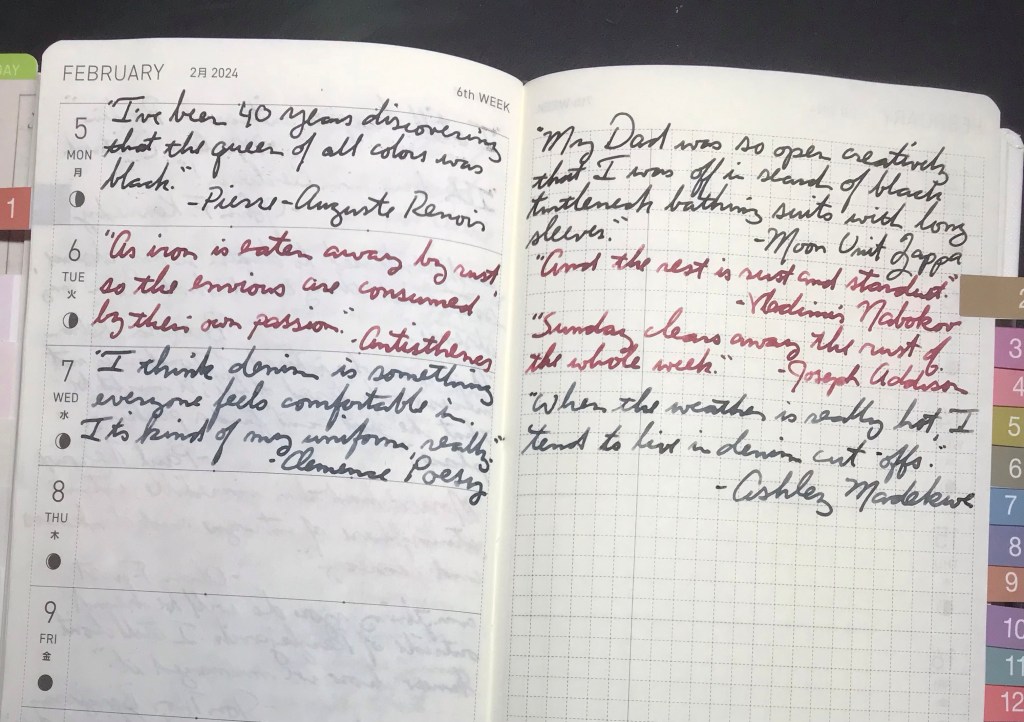 DAY
FEBRUARY 2月 2024
6th WEEK
5
MON
月
"I've been 40 years discovering
that the queen of all colors was
black."
-Pierre-Auguste Renoir
6
TUE
火
"As iron is eaten away by rust,
so the envious are consumed
by their own passion."
-Antisthenes
7
WED
水
"I think denim is something
everyone feels comfortable in.
It's kind of my uniform, really."
-Clemense Poesy
8
THU
木
9
FRI
金
"My Dad was so open creatively
that I was off in search of black
turtleneck bathing suits with long
sleeves."
-Moon Unit Zappa
"And the rest is rust and stardust."
-Vladimir Nabokov
"Sunday clears away the rust of
the whole week."
-Joseph Addison
"When the weather is really hot, I
tend to live in denim cut-offs."
-Ashley Madekwe
1
2
3
4
5
6
7
8
9
10
11
12